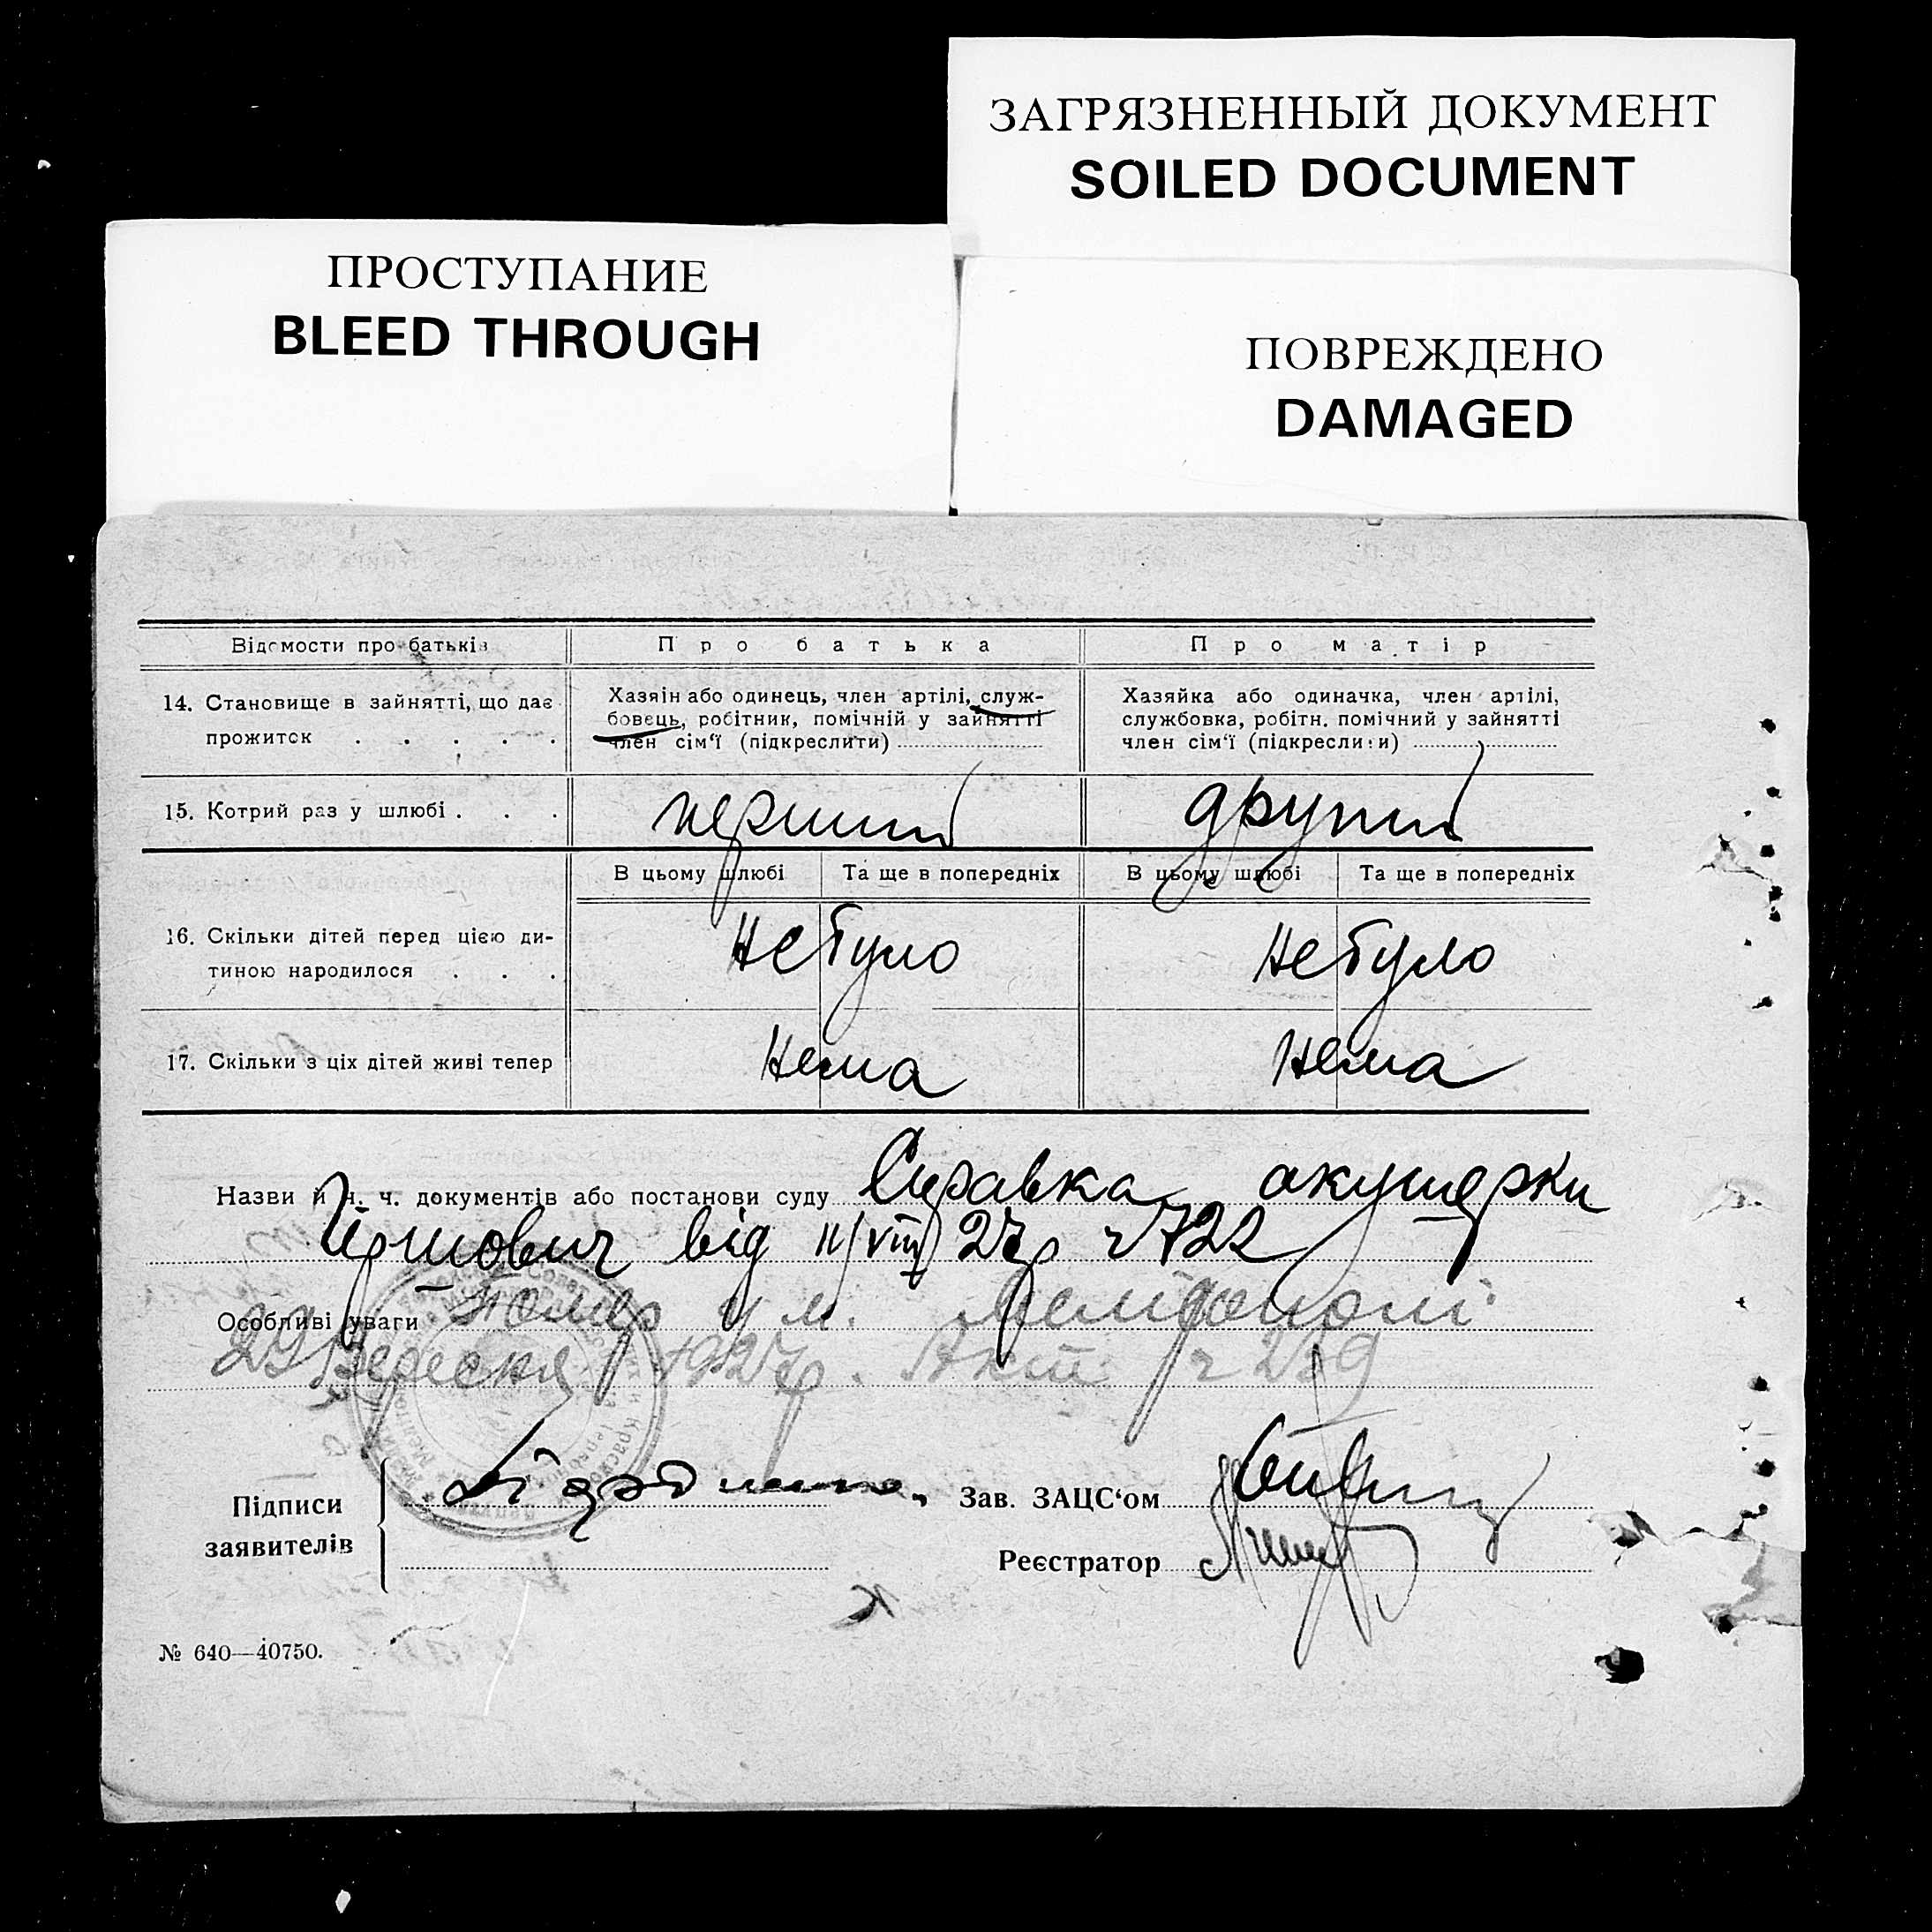 ЗАГРЯЗНЕННЫЙ ДОКУМЕНТ
SOILED DOCUMENT
ПРОСТУПАНИЕ
BLEED THROUGH
ПОВРЕЖДЕНО
DAMAGED
Відомости про батьків
Про батька
Про матір
14. Становище в зайнятті, що дає
прожиток . . . . .
Хазяїн або одинець, член артілі, служ-
бовець, робітник, помічній у зайнятті
член сім'ї (підкреслити)
Хазяйка або одиначка, член артілі,
службовка, робітн. помічний у зайнятті
член сім'ї (підкреслити)
15. Котрий раз у шлюбі . . .
перший
другий
В цьому шлюбі
Та ще в попередніх
В цьому шлюбі
Та ще в попередніх
16. Скільки дітей перед цією ди-
тиною народилося . . .
Небуло
Небуло
17. Скільки з ціх дітей живі тепер
Нема
Нема
Назви й ч. ч. документів або постанови суду Справка акушерки
від 11/VIII 27р ч 722
Особливі уваги Помер у м. Мелітополі
29 Вересня 1927р. Акт ч 239
Підписи
заявителів
Зав. ЗАЦС'ом
Реєстратор
№ 640—40750.